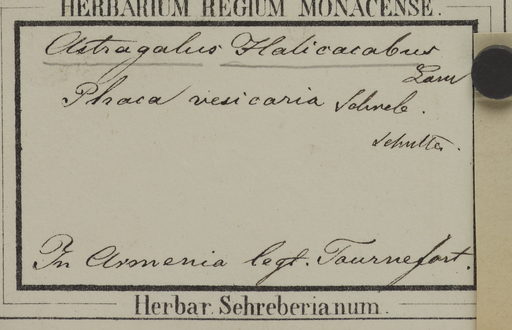 HERBARIUM REGIUM MONACENSE.
Astragalus Halicacabus
Lam
Phaca vesicaria Schreb.
In Armenia legt. Tournefort.
Herbar. Schreberianum.